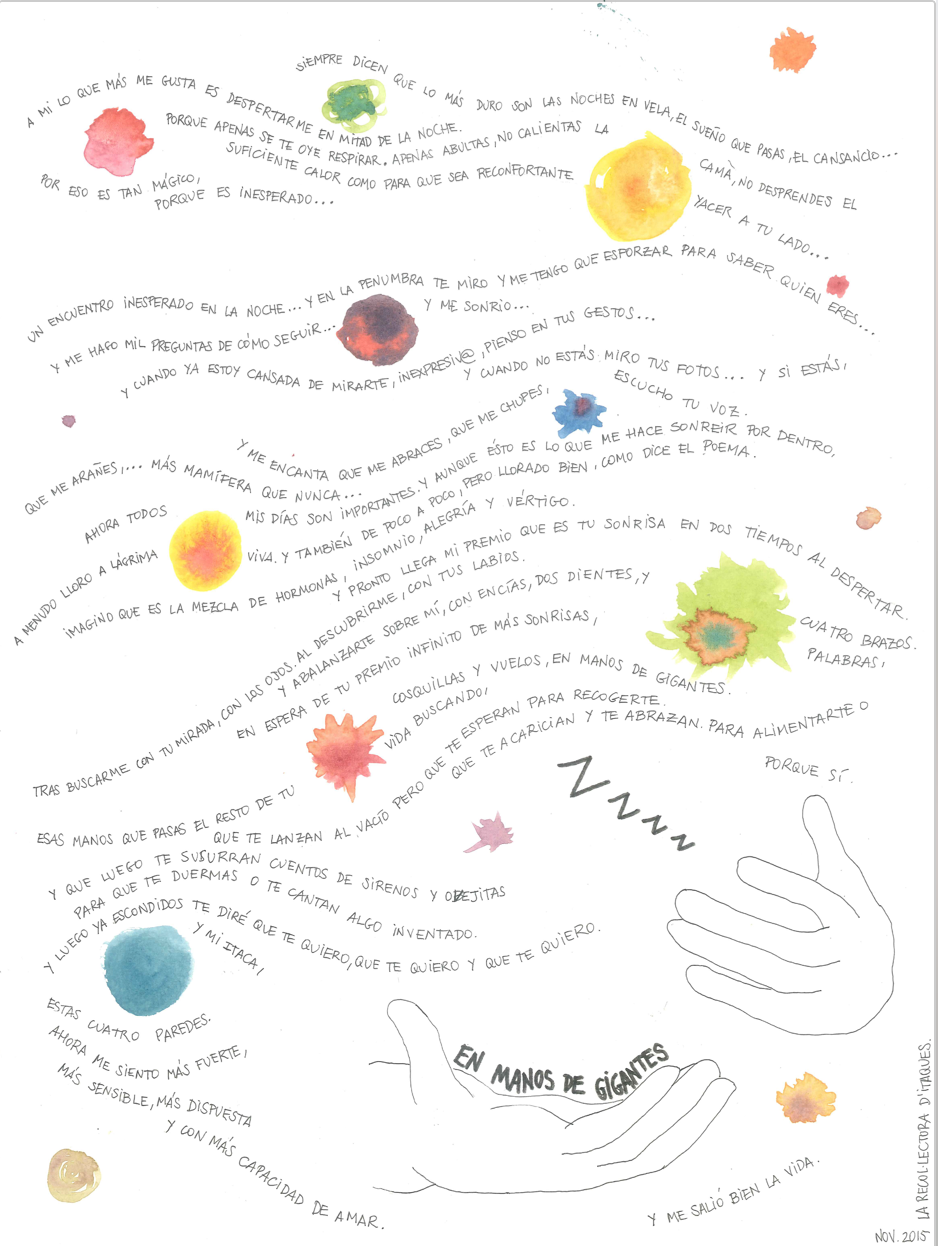 SIEMPRE DICEN QUE LO MÁS DURO SON LAS NOCHES EN VELA, EL SUEÑO QUE PASAS, EL CANSANCIO...
A MI LO QUE MÁS ME GUSTA ES DESPERTARME EN MITAD DE LA NOCHE.
PORQUE APENAS SE TE OYE RESPIRAR. APENAS ABULTAS, NO CALIENTAS LA
CAMÀ, NO DESPRENDES EL
SUFICIENTE CALOR COMO PARA QUE SEA RECONFORTANTE
YACER A TU LADO...
POR ESO ES TAN MÁGICO,
PORQUE ES INESPERADO...
UN ENCUENTRO INESPERADO EN LA NOCHE... Y EN LA PENUMBRA TE MIRO Y ME TENGO QUE ESFORZAR PARA SABER QUIEN ERES...
Y ME HAGO MIL PREGUNTAS DE CÓMO SEGUIR...
Y ME SONRIO...
Y CUANDO YA ESTOY CANSADA DE MIRARTE, INEXPRESIV@, PIENSO EN TUS GESTOS...
Y CUANDO NO ESTÁS MIRO TUS FOTOS... Y SI ESTÁS,
ESCUCHO TU VOZ.
Y ME ENCANTA QUE ME ABRACES, QUE ME CHUPES,
QUE ME ARAÑES,... MÁS MAMÍFERA QUE NUNCA...
AHORA TODOS
MIS DÍAS SON IMPORTANTES. Y AUNQUE ÉSTO ES LO QUE ME HACE SONREIR POR DENTRO,
A MENUDO LLORO A LÁGRIMA
VIVA. Y TAMBIÉN DE POCO A POCO, PERO LLORADO BIEN, COMO DICE EL POEMA.
IMAGINO QUE ES LA MEZCLA DE HORMONAS, INSOMNIO, ALEGRÍA Y VÉRTIGO.
Y PRONTO LLEGA MI PREMIO QUE ES TU SONRISA EN DOS TIEMPOS AL DESPERTAR.
TRAS BUSCARME CON TU MIRADA, CON LOS OJOS. AL DESCUBRIRME, CON TUS LABIOS.
Y ABALANZARTE SOBRE MÍ, CON ENCÍAS, DOS DIENTES, Y
CUATRO BRAZOS.
EN ESPERA DE TU PREMIO INFINITO DE MÁS SONRISAS,
PALABRAS,
COSQUILLAS Y VUELOS, EN MANOS DE GIGANTES.
ESAS MANOS QUE PASAS EL RESTO DE TU
VIDA BUSCANDO,
QUE TE LANZAN AL VACÍO PERO QUE TE ESPERAN PARA RECOGERTE.
QUE TE ACARICIAN Y TE ABRAZAN. PARA ALIMENTARTE O
PORQUE SÍ.
Y QUE LUEGO TE SUSURRAN CUENTOS DE SIRENOS Y OVEJITAS
PARA QUE TE DUERMAS O TE CANTAN ALGO INVENTADO.
Y LUEGO YA ESCONDIDOS TE DIRÉ QUE TE QUIERO, QUE TE QUIERO Y QUE TE QUIERO.
Y MI ITACA,
ESTAS CUATRO PAREDES.
AHORA ME SIENTO MÁS FUERTE,
MÁS SENSIBLE, MÁS DISPUESTA
Y CON MÁS CAPACIDAD DE AMAR.
Y ME SALIÓ BIEN LA VIDA.
ZZZZZ
EN MANOS DE GIGANTES
LA RECOL·LECTORA D'ITAQUES.
NOV. 2015